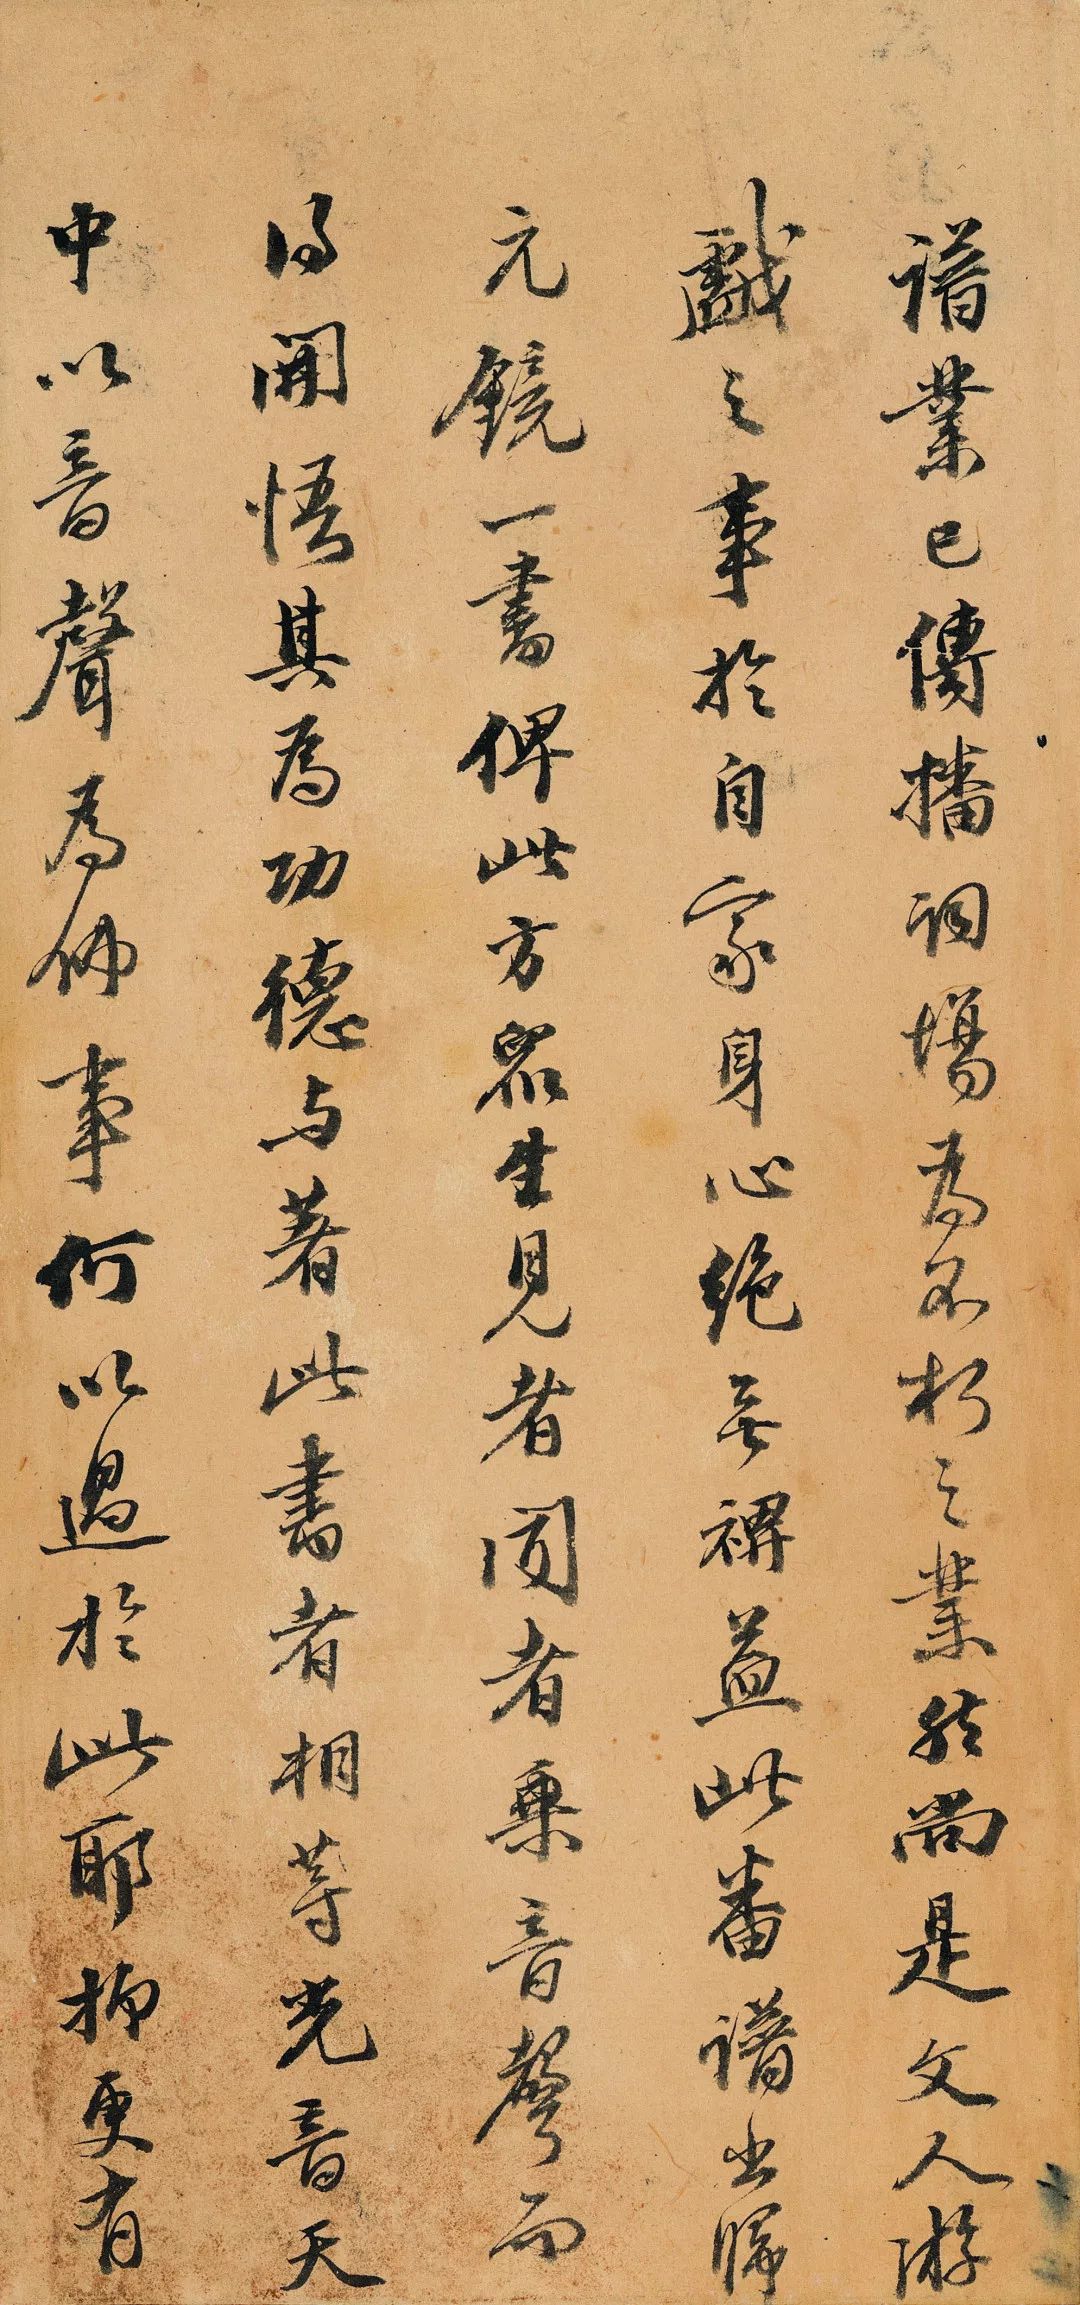 譜業已傳播詞場為不朽之業然尚是文人游
戲之事於自家身心絕無裨益此番譜出歸
元鏡一書俾此方眾生見者聞者乘音聲而
得開悟其為功德與著此書者相等光音天
中以音聲為佛事何以過於此耶抑更有